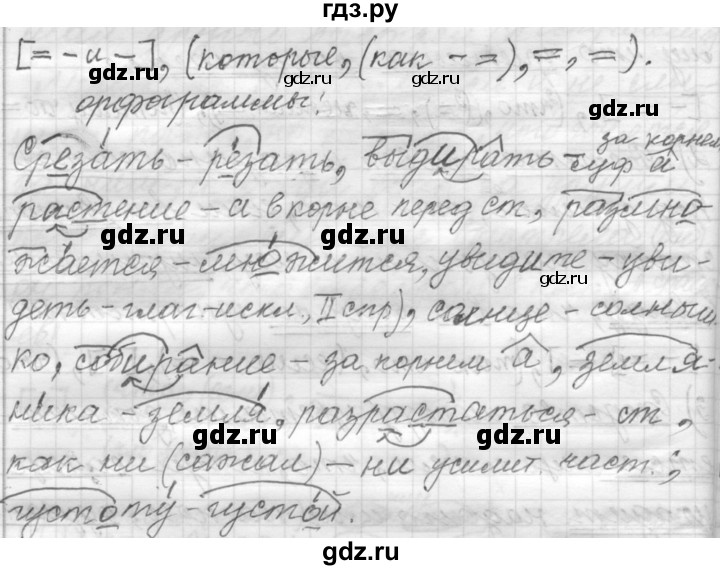 гдз.ру
[= – и –], (которые, (как – =), =, =).
орфограммы:
Срезать – резать, выдирать – за корнем суф а
растение – а в корне перед ст, размно-
жается – множится, увидите – уви-
деть – глаг-искл, II спр), солнце – солныш
ко, собирание – за корнем а, земля-
ника – земля, разрастаться – ст,
как ни (сажал) – ни усилит наст.;
густоту – густой.
gdz.ru
gdz.ru
gdz.ru
gdz.ru
gdz.ru
gdz.ru
gdz.ru
gdz.ru
gdz.ru
gdz.ru
gdz.ru
gdz.ru
gdz.ru
гдз.ру